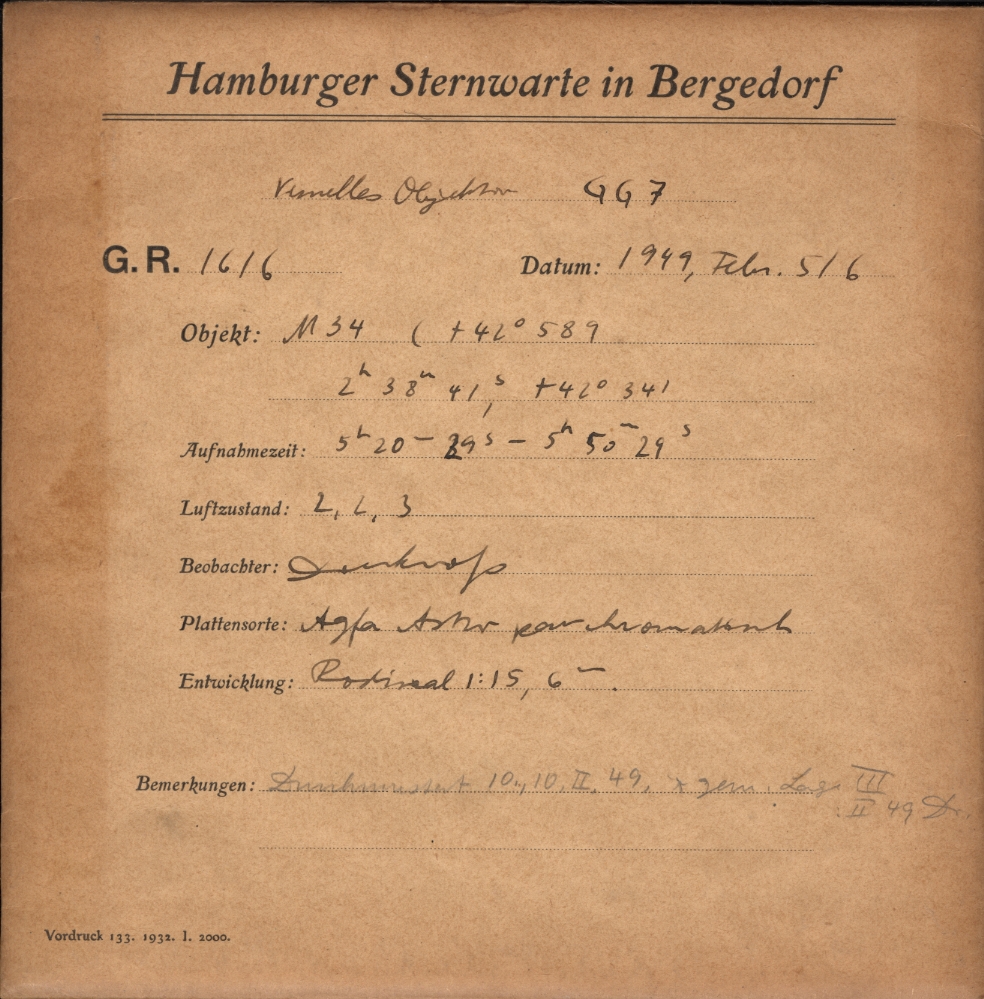 Hamburger Sternwarte in Bergedorf
Visuelles Objektiv GG7
G. R. 1616 Datum: 1949, Febr. 5/6
Objekt: M 34 ( +42° 589
2h 38m 41s, +42° 341
Aufnahmezeit: 5h 20m 29s – 5h 50m 29s
Luftzustand: 2, 2, 3
Beobachter:
Plattensorte: Agfa Astro panchromatisch
Entwicklung: Rodinal 1:15, 6m.
Bemerkungen: 10., 10. II. 49, x gem. III
II 49 D.
Vordruck 133. 1932. I. 2000.